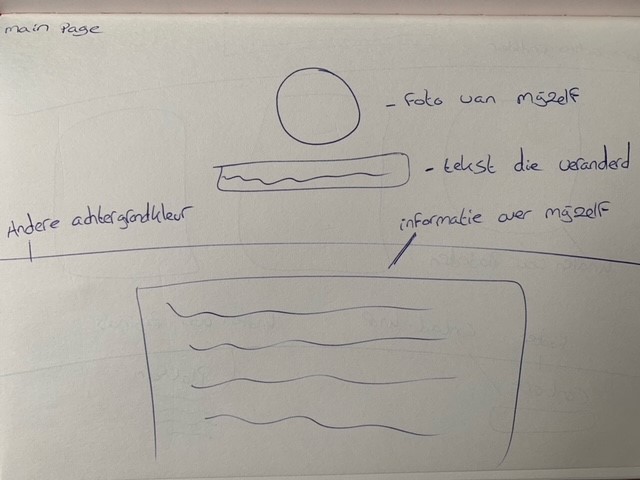 main Page
- Foto van mijzelf
- tekst die veranderd
Andere achtergrondkleur
informatie over mijzelf